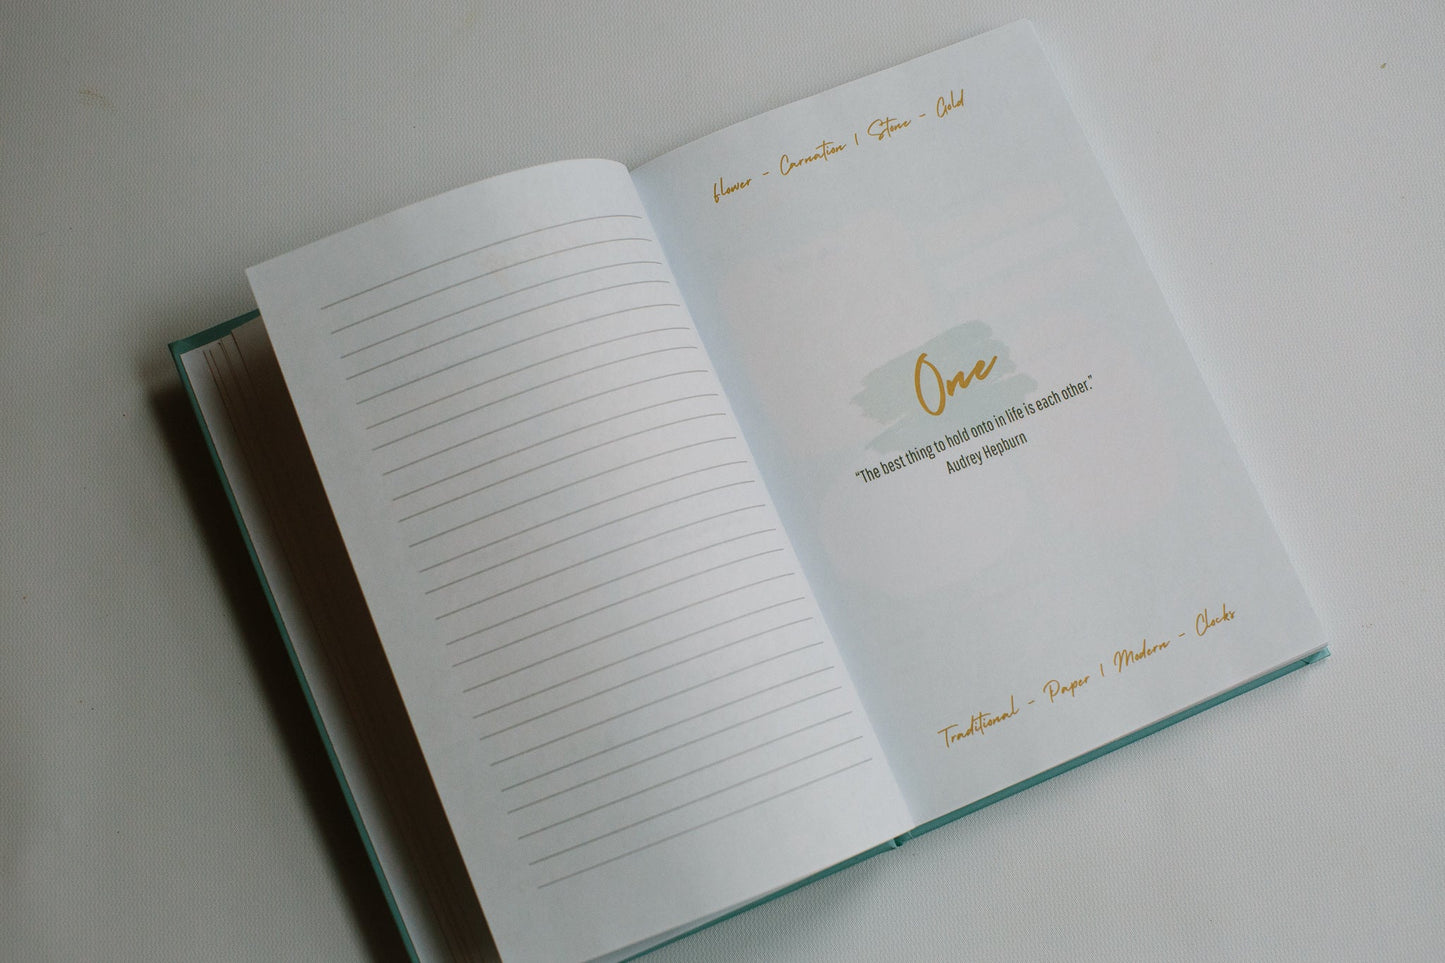 flower - Carnation | Stone - Gold
One
“The best thing to hold onto in life is each other.”
Audrey Hepburn
Traditional - Paper | Modern - Clocks